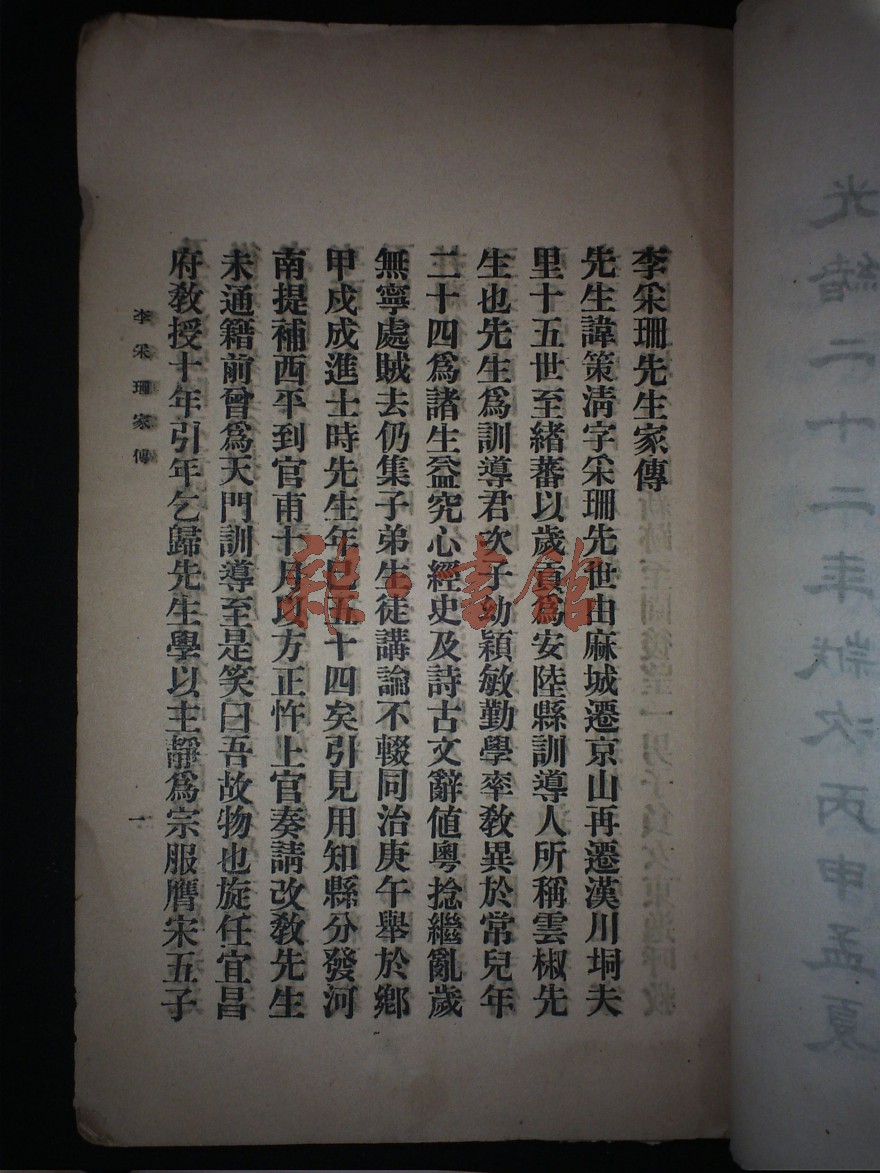 李采珊先生家傳
先生諱策淸字采珊先世由麻城遷京山再遷漢川垌夫
里十五世至緒蕃以歲貢爲安陸縣訓導人所稱雲椒先
生也先生爲訓導君次子幼穎敏勤學率敎異於常兒年
二十四爲諸生益究心經史及詩古文辭値粵捻繼亂歲
無寧處賊去仍集子弟生徒講論不輟同治庚午舉於鄉
甲戌成進士時先生年已五十四矣引見用知縣分發河
南提補西平到官甫十月以方正忤上官奏請改敎先生
未通籍前曾爲天門訓導至是笑曰吾故物也旋任宜昌
府敎授十年引年乞歸先生學以主靜爲宗服膺宋五子
李采珊家傳
一
雜·書館
光緒二十二年歲次丙申孟夏